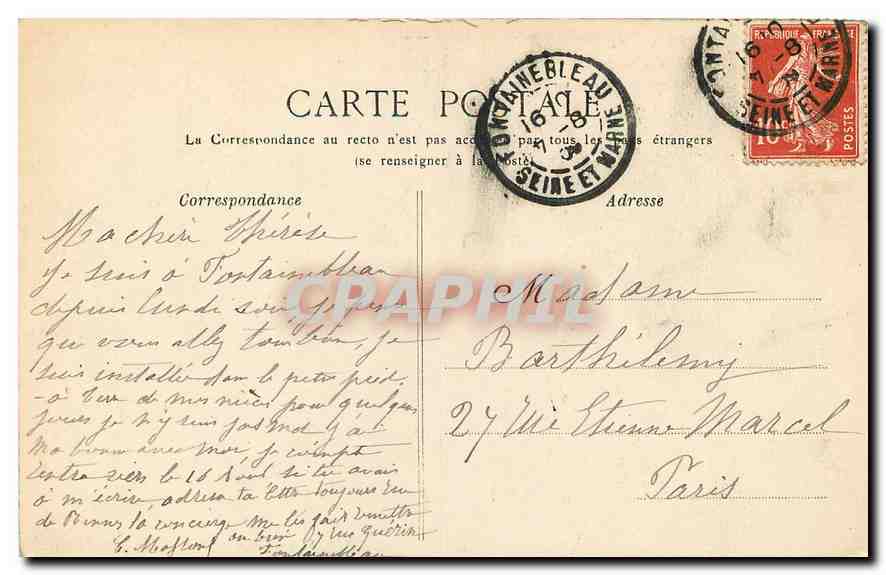 CARTE POSTALE
La Correspondance au recto n'est pas acceptée par tous les pays étrangers
(se renseigner à la Poste)
Correspondance
Ma chère Thérèse
je suis à Fontainebleau
depuis lundi soir, je pense
que vous allez tous bien, je
suis installée dans le petit pied
-à terre de mes nièces pour quelques
jours je n'y suis pas mal j'ai
ma bonne avec moi, je compte
rentrer vers le 16 Août si tu avais
à m'écrire adresse ta lettre toujours rue
de Rennes la concierge me les fait remettre
ou bien 7 rue Guérin
Fontainebleau
Adresse
Madame
Barthélemy
27 rue Etienne Marcel
Paris
FONTAINEBLEAU
16
7 -8
SEINE ET MARNE
REPUBLIQUE FRANCAISE
10
POSTES
FONTA
16
7 -8
SEINE ET MARNE
CRAPHIL